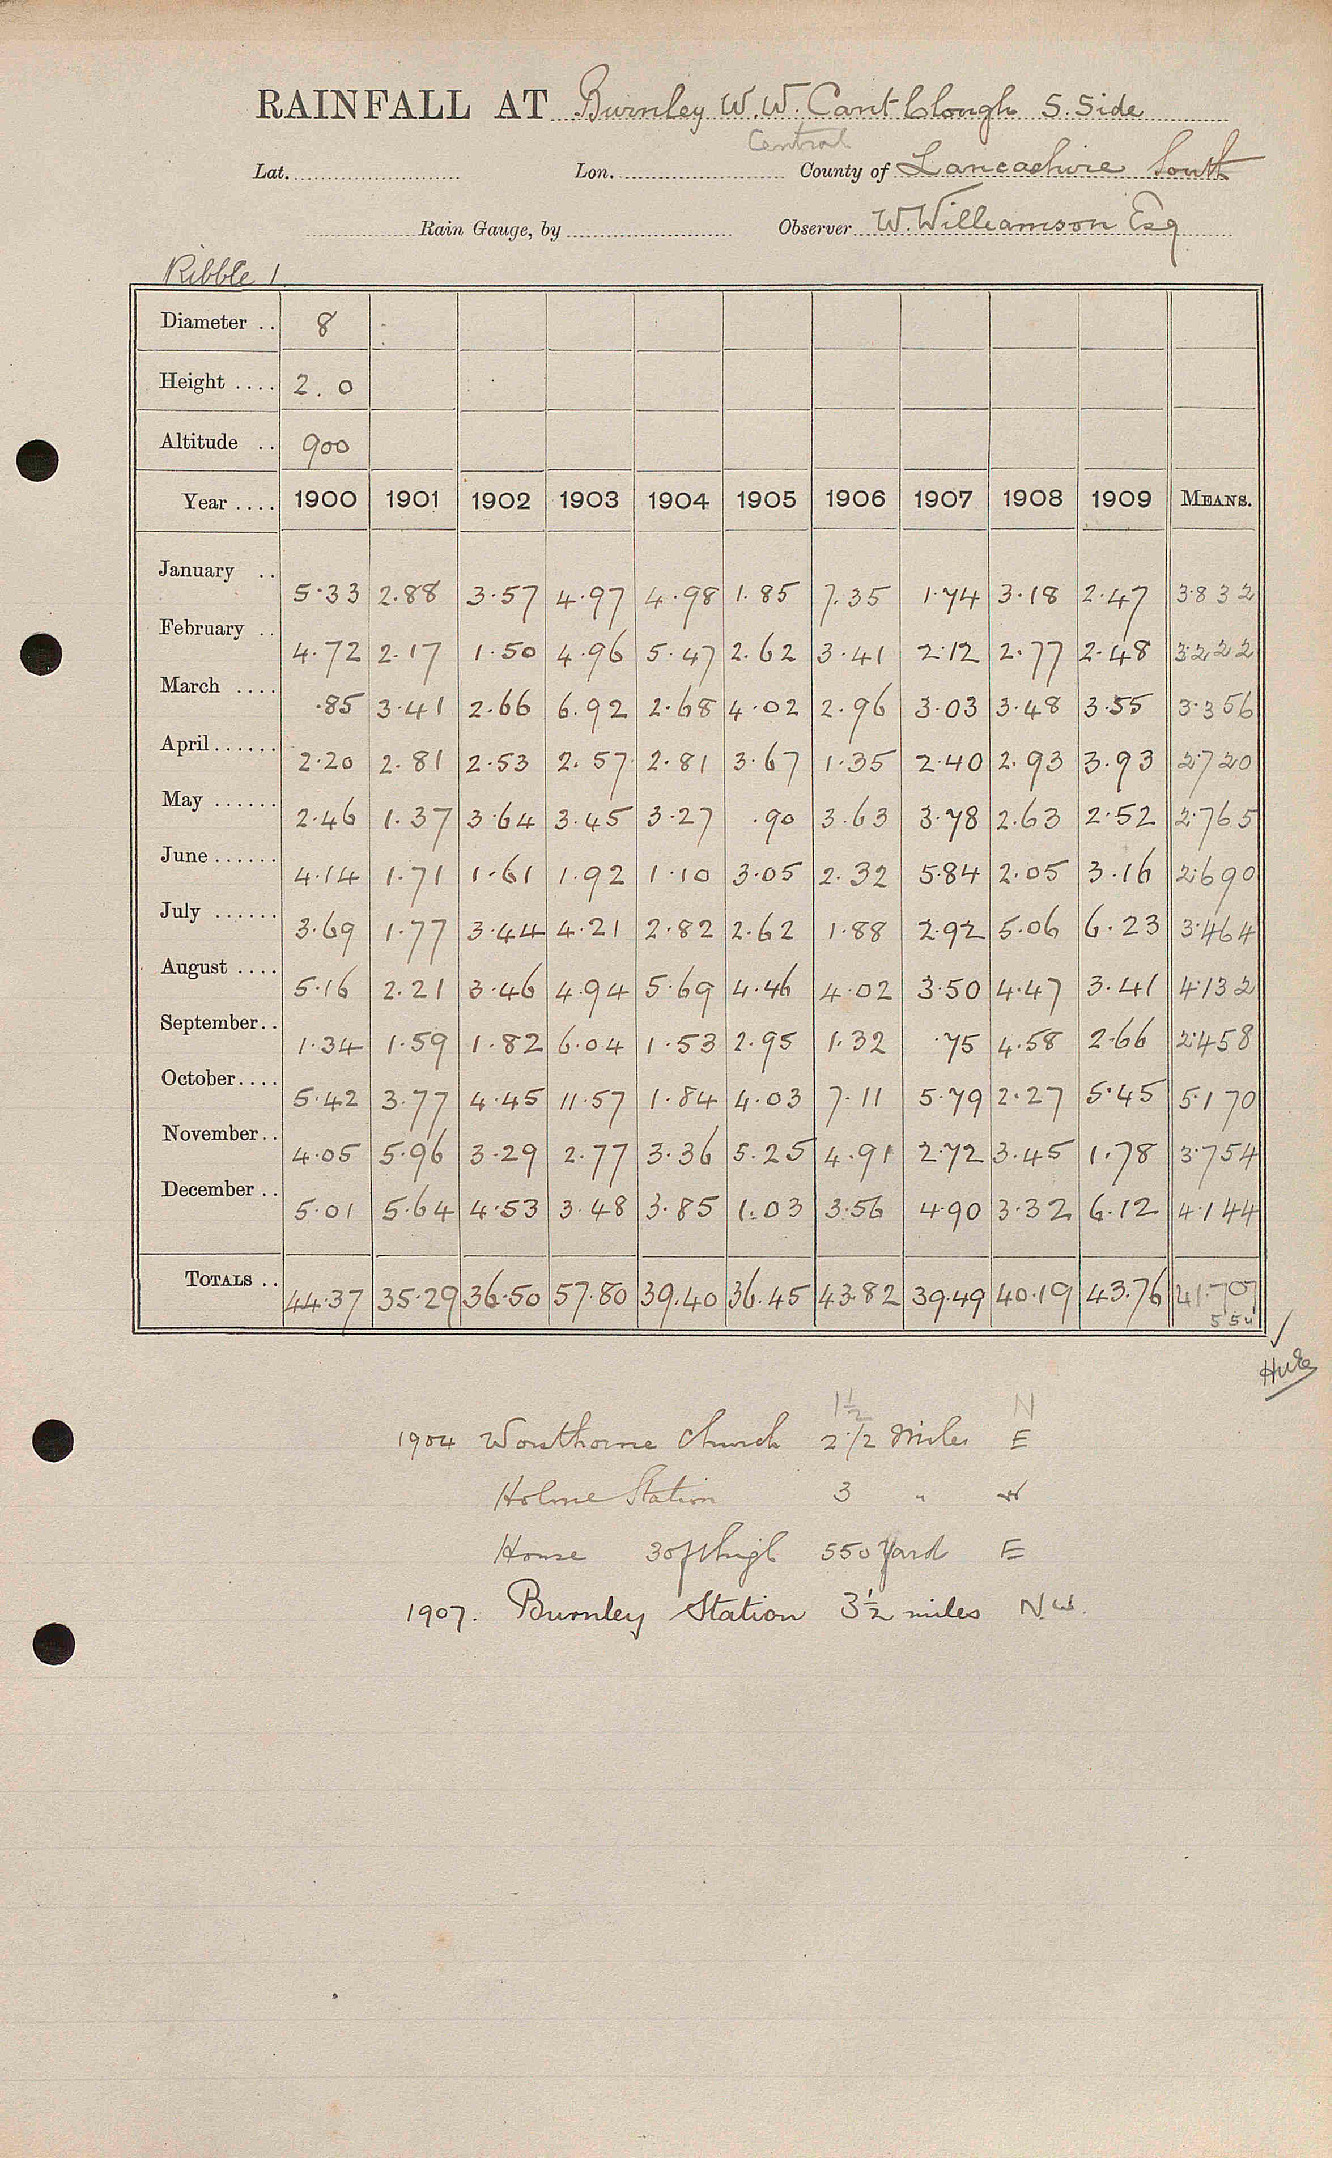 RAINFALL AT Burnley W.W. Cant Clough S. Side
Central
Lat. Lon. County of Lancashire South
Rain Gauge, by Observer W. Williamson Esq
Ribble 1.
Diameter .. 8
Height .... 2.0
Altitude .. 900
Year .... 1900 1901 1902 1903 1904 1905 1906 1907 1908 1909 MEANS.
January .. 5.33 2.88 3.57 4.97 4.98 1.85 7.35 1.74 3.18 2.47 3.832
February .. 4.72 2.17 1.50 4.96 5.47 2.62 3.41 2.12 2.77 2.48 3.222
March .... .85 3.41 2.66 6.92 2.68 4.02 2.96 3.03 3.48 3.55 3.356
April...... 2.20 2.81 2.53 2.57 2.81 3.67 1.35 2.40 2.93 3.93 2.720
May ...... 2.46 1.37 3.64 3.45 3.27 .90 3.63 3.78 2.63 2.52 2.765
June ...... 4.14 1.71 1.61 1.92 1.10 3.05 2.32 5.84 2.05 3.16 2.690
July ...... 3.69 1.77 3.44 4.21 2.82 2.62 1.88 2.92 5.06 6.23 3.464
August .... 5.16 2.21 3.46 4.94 5.69 4.46 4.02 3.50 4.47 3.41 4.132
September.. 1.34 1.59 1.82 6.04 1.53 2.95 1.32 .75 4.58 2.66 2.458
October.... 5.42 3.77 4.45 11.57 1.84 4.03 7.11 5.79 2.27 5.45 5.170
November.. 4.05 5.96 3.29 2.77 3.36 5.25 4.91 2.72 3.45 1.78 3.754
December .. 5.01 5.64 4.53 3.48 3.85 1.03 3.56 4.90 3.32 6.12 4.144
TOTALS .. 44.37 35.29 36.50 57.80 39.40 36.45 43.82 39.49 40.19 43.76 41.707
1½ N
1904 Worsthorne Church 2 1/2 Miles E
Holme Station 3 " W
House 30 ft high 550 Yard E
1907. Burnley Station 3½ miles N.W.